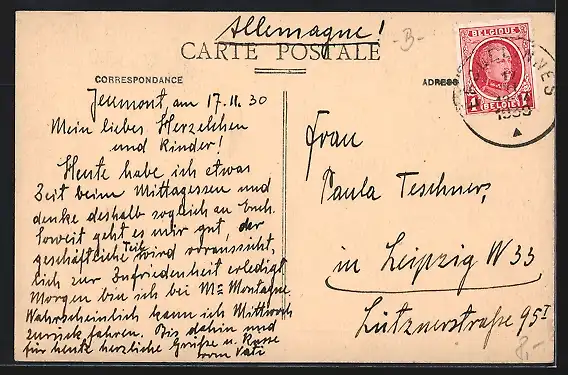 Allemagne!
-B-
CARTE POSTALE
CORRESPONDANCE
Jeumont, am 17.11.30
Mein liebes Herzelchen
und Kinder!
Heute habe ich etwas
Zeit beim Mittagessen und
denke deshalb sogleich an Euch.
Soweit geht es mir gut, der
geschäftliche Teil wird voraussicht,
lich zur Zufriedenheit erledigt
Morgen bin ich bei Mme Montagne
Wahrscheinlich kann ich Mittwoch
zurückfahren. Bis dahin und
für heute herzliche Grüße u. Küsse
vom Vati
BELGIQUE
BELGIË
1930
Frau
Paula Teschner,
in Leipzig W 33
Lütznerstraße 95 I
8,-